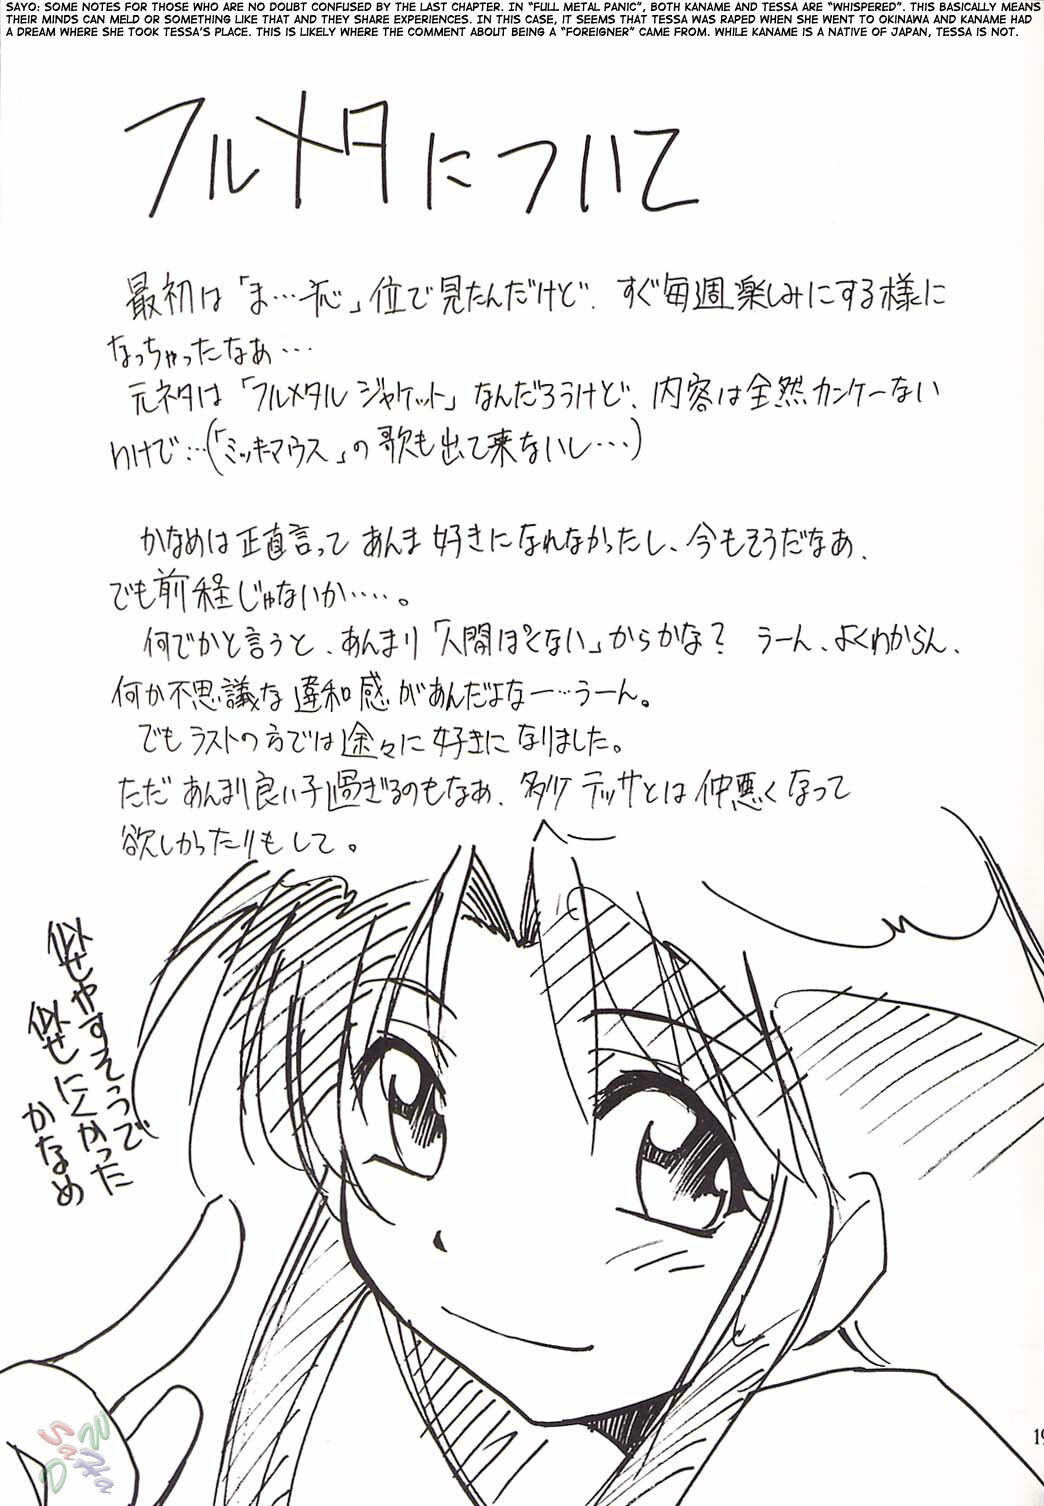 SAYO: SOME NOTES FOR THOSE WHO ARE NO DOUBT CONFUSED BY THE LAST CHAPTER. IN "FULL METAL PANIC", BOTH KANAME AND TESSA ARE "WHISPERED". THIS BASICALLY MEANS
THEIR MINDS CAN MELD OR SOMETHING LIKE THAT AND THEY SHARE EXPERIENCES. IN THIS CASE, IT SEEMS THAT TESSA WAS RAPED WHEN SHE WENT TO OKINAWA AND KANAME HAD
A DREAM WHERE SHE TOOK TESSA'S PLACE. THIS IS LIKELY WHERE THE COMMENT ABOUT BEING A "FOREIGNER" CAME FROM. WHILE KANAME IS A NATIVE OF JAPAN, TESSA IS NOT.
フルメタについて
最初は「ま…一応」位で見たんだけど、すぐ毎週楽しみにする様に
なっちゃったなぁ…
元ネタは「フルメタルジャケット」なんだろうけど、内容は全然カンケーない
わけで…(「ミッキーマウス」の歌も出て来ないし…)
かなめは正直言ってあんま好きになれなかったし、今もそうだなあ、
でも前程じゃないか……。
何でかと言うと、あんまり「人間ぽくない」からかな? うーん、よくわからん、
何か不思議な違和感があんだよなー…うーん。
でもラストの方では途々に好きになりました。
ただあんまり良い子過ぎるのもなぁ、多少テッサとは仲悪くなって
欲しかったりもして。
似せやすそうで
似せにくかった
かなめ
19